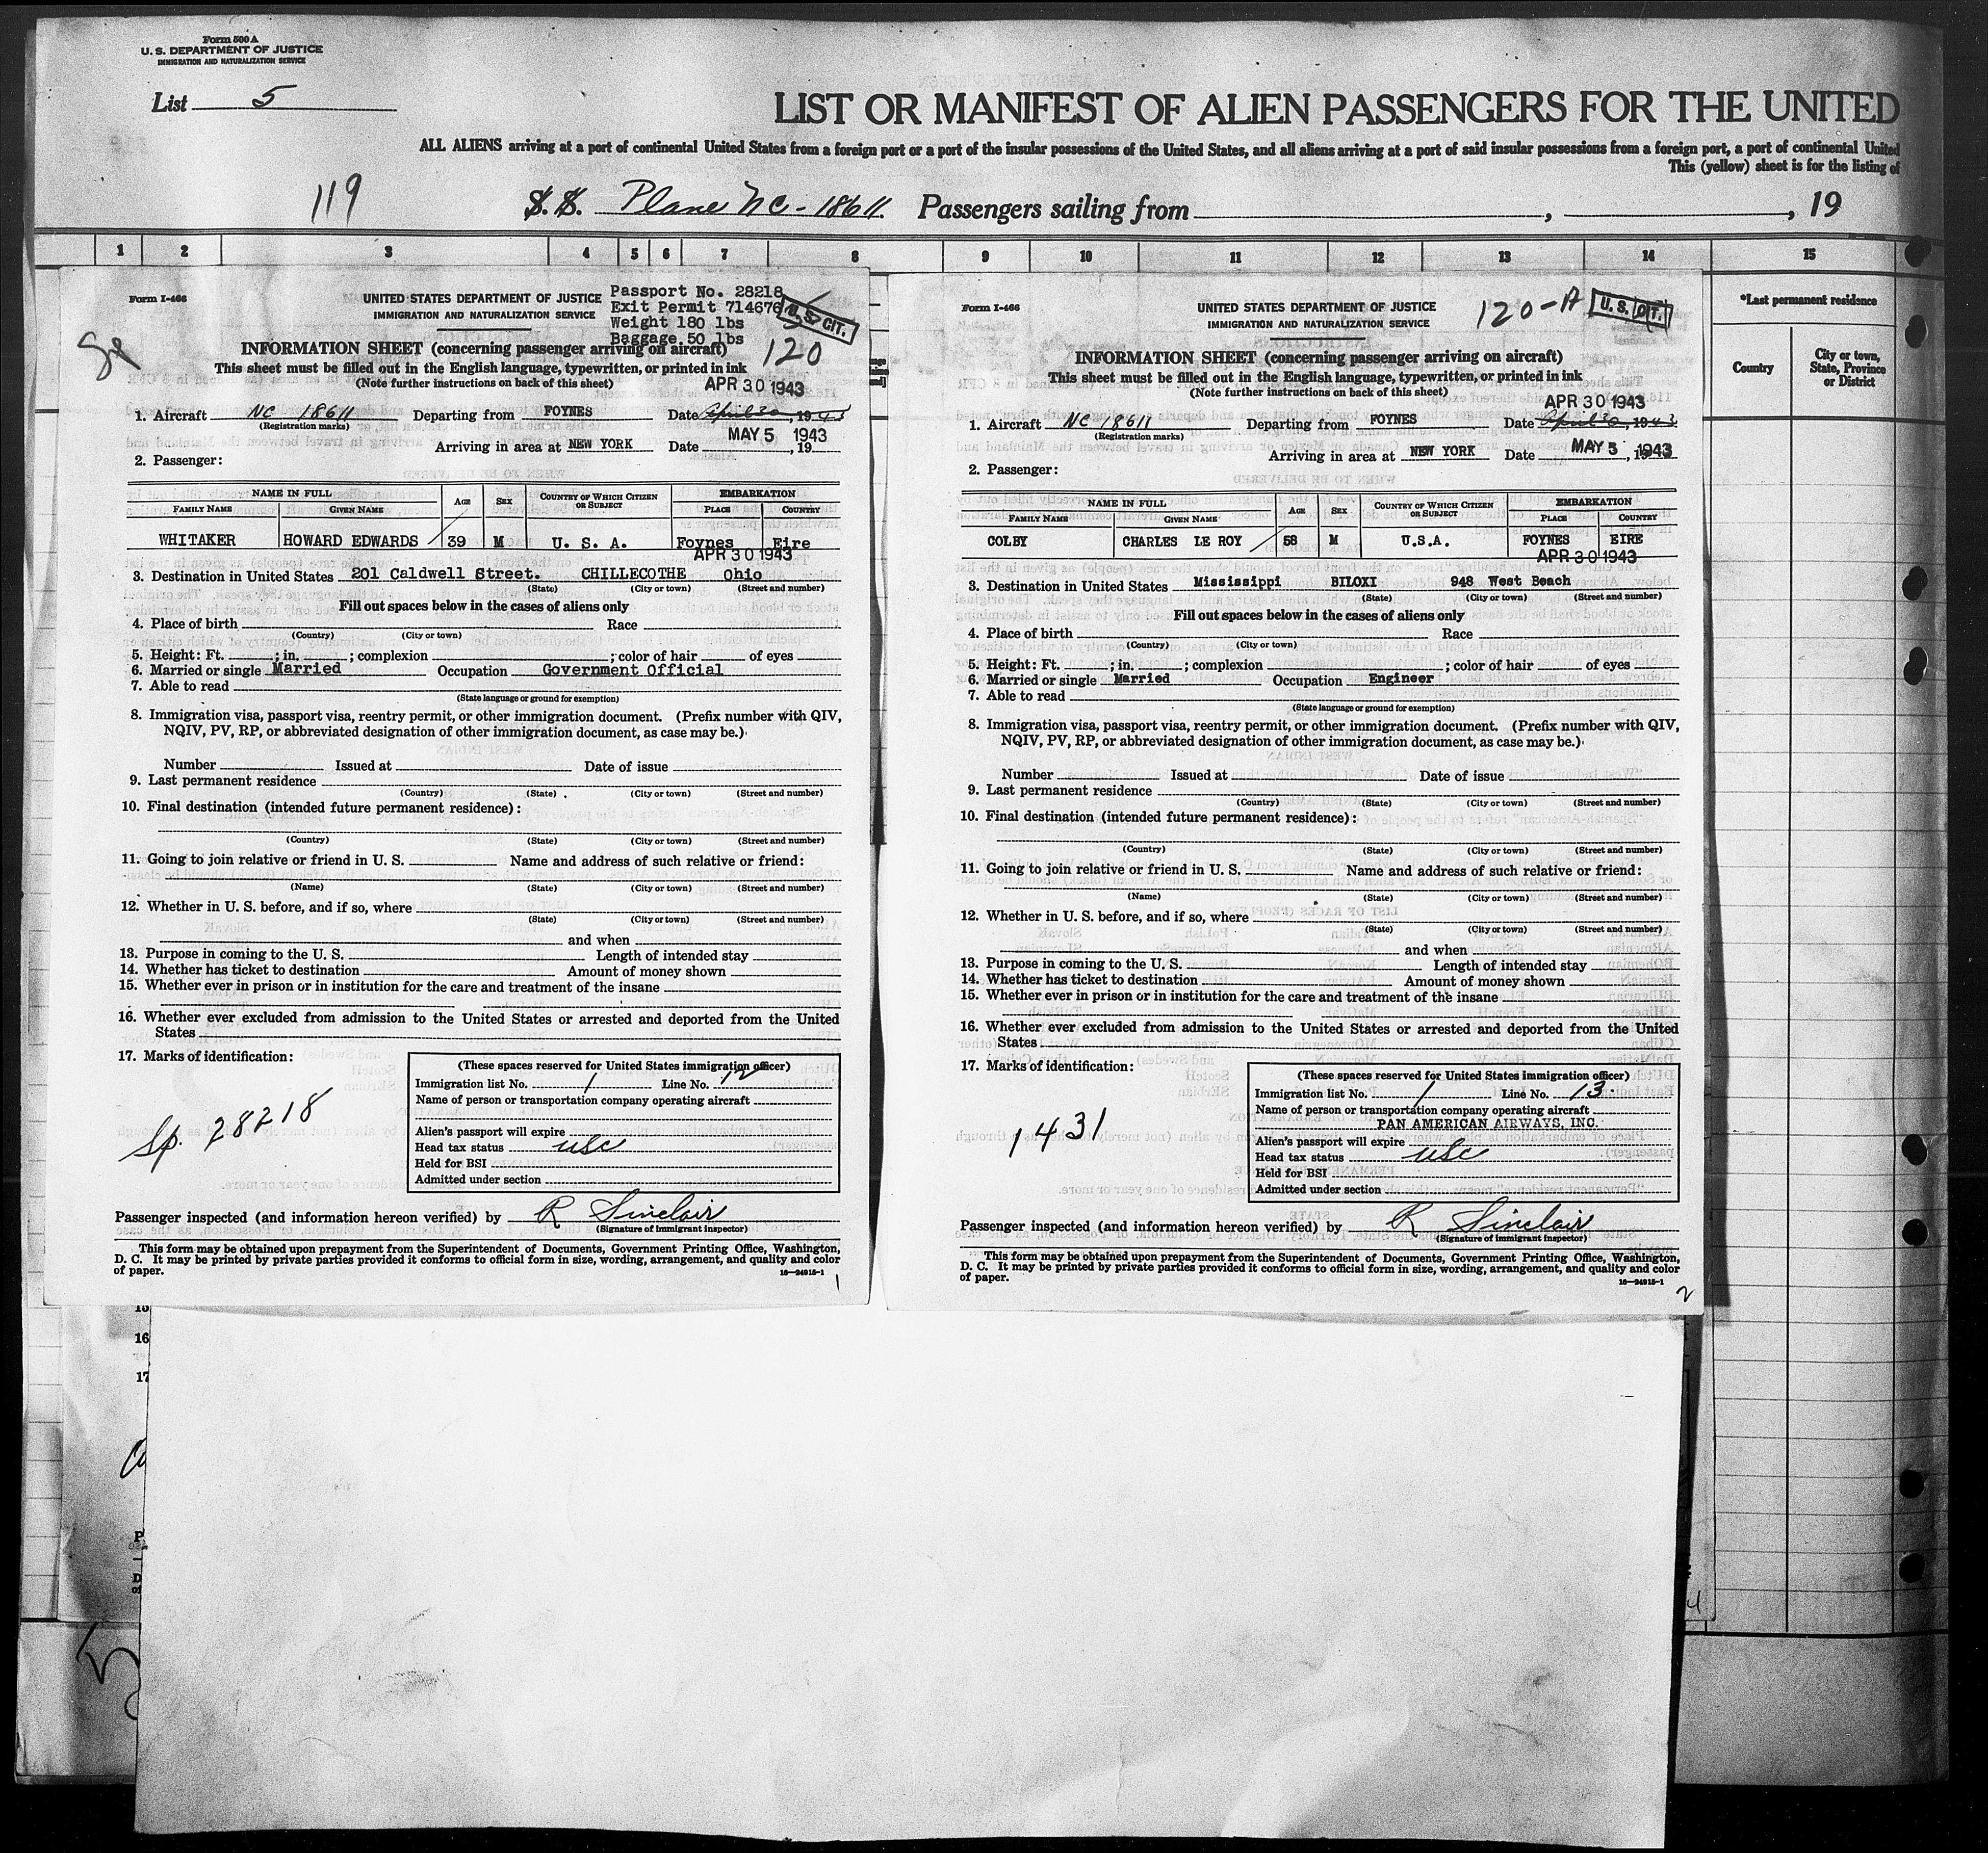 Form 500 A
U. S. DEPARTMENT OF JUSTICE
IMMIGRATION AND NATURALIZATION SERVICE
List 5
LIST OR MANIFEST OF ALIEN PASSENGERS FOR THE UNITED
ALL ALIENS arriving at a port of continental United States from a foreign port or a port of the insular possessions of the United States, and all aliens arriving at a port of said insular possessions from a foreign port, a port of continental United
This (yellow) sheet is for the listing of
119
S. S. Plane NC-18611. Passengers sailing from , , 19
1 2 3 4 5 6 7 8 9 10 11 12 13 14 15
*Last permanent residence
Country
City or town,
State, Province
or District
Form I-466
UNITED STATES DEPARTMENT OF JUSTICE
IMMIGRATION AND NATURALIZATION SERVICE
Passport No. 28218
Exit Permit 714676
Weight 180 lbs
Baggage 50 lbs
U. S. CIT.
120
INFORMATION SHEET (concerning passenger arriving on aircraft)
This sheet must be filled out in the English language, typewritten, or printed in ink
(Note further instructions on back of this sheet)
APR 30 1943
1. Aircraft NC 18611 Departing from FOYNES Date April 30, 1943
(Registration marks)
MAY 5 1943
Arriving in area at NEW YORK Date , 19
2. Passenger:
NAME IN FULL AGE SEX COUNTRY OF WHICH CITIZEN OR SUBJECT EMBARKATION
FAMILY NAME GIVEN NAME PLACE COUNTRY
WHITAKER HOWARD EDWARDS 39 M U. S. A. Foynes Eire
APR 30 1943
3. Destination in United States 201 Caldwell Street. CHILLECOTHE Ohio
(State) (City or town) (Street and number)
Fill out spaces below in the cases of aliens only
4. Place of birth Race
(Country) (City or town)
5. Height: Ft. ; in. ; complexion ; color of hair of eyes
6. Married or single Married Occupation Government Official
7. Able to read
(State language or ground for exemption)
8. Immigration visa, passport visa, reentry permit, or other immigration document. (Prefix number with QIV,
NQIV, PV, RP, or abbreviated designation of other immigration document, as case may be.)
Number Issued at Date of issue
9. Last permanent residence
(Country) (State) (City or town) (Street and number)
10. Final destination (intended future permanent residence):
(Country) (State) (City or town) (Street and number)
11. Going to join relative or friend in U. S. Name and address of such relative or friend:
(Name) (State) (City or town) (Street and number)
12. Whether in U. S. before, and if so, where
(State) (City or town) (Street and number)
and when
13. Purpose in coming to the U. S. Length of intended stay
14. Whether has ticket to destination Amount of money shown
15. Whether ever in prison or in institution for the care and treatment of the insane
16. Whether ever excluded from admission to the United States or arrested and deported from the United
States
17. Marks of identification:
Sp. 28218
(These spaces reserved for United States immigration officer)
Immigration list No. 1 Line No. 12
Name of person or transportation company operating aircraft
Alien's passport will expire
Head tax status USC
Held for BSI
Admitted under section
Passenger inspected (and information hereon verified) by R Sinclair
(Signature of immigrant inspector)
This form may be obtained upon prepayment from the Superintendent of Documents, Government Printing Office, Washington,
D. C. It may be printed by private parties provided it conforms to official form in size, wording, arrangement, and quality and color
of paper.
16—24915-1
1
Form I-466
UNITED STATES DEPARTMENT OF JUSTICE
IMMIGRATION AND NATURALIZATION SERVICE
120-A
U. S. CIT.
INFORMATION SHEET (concerning passenger arriving on aircraft)
This sheet must be filled out in the English language, typewritten, or printed in ink
(Note further instructions on back of this sheet)
APR 30 1943
1. Aircraft NC 18611 Departing from FOYNES Date April 30, 1943
(Registration marks)
MAY 5 1943
Arriving in area at NEW YORK Date , 19
2. Passenger:
NAME IN FULL AGE SEX COUNTRY OF WHICH CITIZEN OR SUBJECT EMBARKATION
FAMILY NAME GIVEN NAME PLACE COUNTRY
COLBY CHARLES LE ROY 58 M U.S.A. FOYNES EIRE
APR 30 1943
3. Destination in United States Mississippi BILOXI 948 West Beach
(State) (City or town) (Street and number)
Fill out spaces below in the cases of aliens only
4. Place of birth Race
(Country) (City or town)
5. Height: Ft. ; in. ; complexion ; color of hair of eyes
6. Married or single Married Occupation Engineer
7. Able to read
(State language or ground for exemption)
8. Immigration visa, passport visa, reentry permit, or other immigration document. (Prefix number with QIV,
NQIV, PV, RP, or abbreviated designation of other immigration document, as case may be.)
Number Issued at Date of issue
9. Last permanent residence
(Country) (State) (City or town) (Street and number)
10. Final destination (intended future permanent residence):
(Country) (State) (City or town) (Street and number)
11. Going to join relative or friend in U. S. Name and address of such relative or friend:
(Name) (State) (City or town) (Street and number)
12. Whether in U. S. before, and if so, where
(State) (City or town) (Street and number)
and when
13. Purpose in coming to the U. S. Length of intended stay
14. Whether has ticket to destination Amount of money shown
15. Whether ever in prison or in institution for the care and treatment of the insane
16. Whether ever excluded from admission to the United States or arrested and deported from the United
States
17. Marks of identification:
1431
(These spaces reserved for United States immigration officer)
Immigration list No. 1 Line No. 13
Name of person or transportation company operating aircraft
PAN AMERICAN AIRWAYS, INC.
Alien's passport will expire
Head tax status USC
Held for BSI
Admitted under section
Passenger inspected (and information hereon verified) by R Sinclair
(Signature of immigrant inspector)
This form may be obtained upon prepayment from the Superintendent of Documents, Government Printing Office, Washington,
D. C. It may be printed by private parties provided it conforms to official form in size, wording, arrangement, and quality and color
of paper.
16—24915-1
2
16
17
5
4